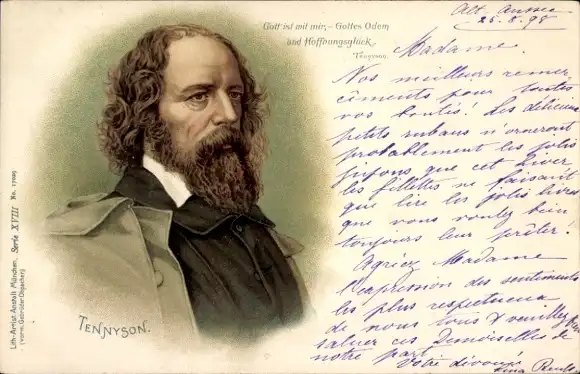 Gott ist mit mir, – Gottes Odem
und Hoffnungsglück.
TENNYSON.
Alt Aussee
25.8.98
Madame.
Nos meilleurs remer-
cîments pour toutes
vos bontés! Les délicieux
petits rubans n'orneront
probablement les jolis
que cet hiver
les fillettes ne faisant
que lire les jolis livres
que vous voulez bien
toujours leur prêter.
Agréez Madame
l'expression des sentiments
les plus respectueux
de nous tous & veuillez
saluer ces Demoiselles de
notre part.
Votre dévouée
TENNYSON.
Lith.-Artist. Anstalt München, Serie XVIII No. 17095
(vorm. Gebrüder Obpacher)